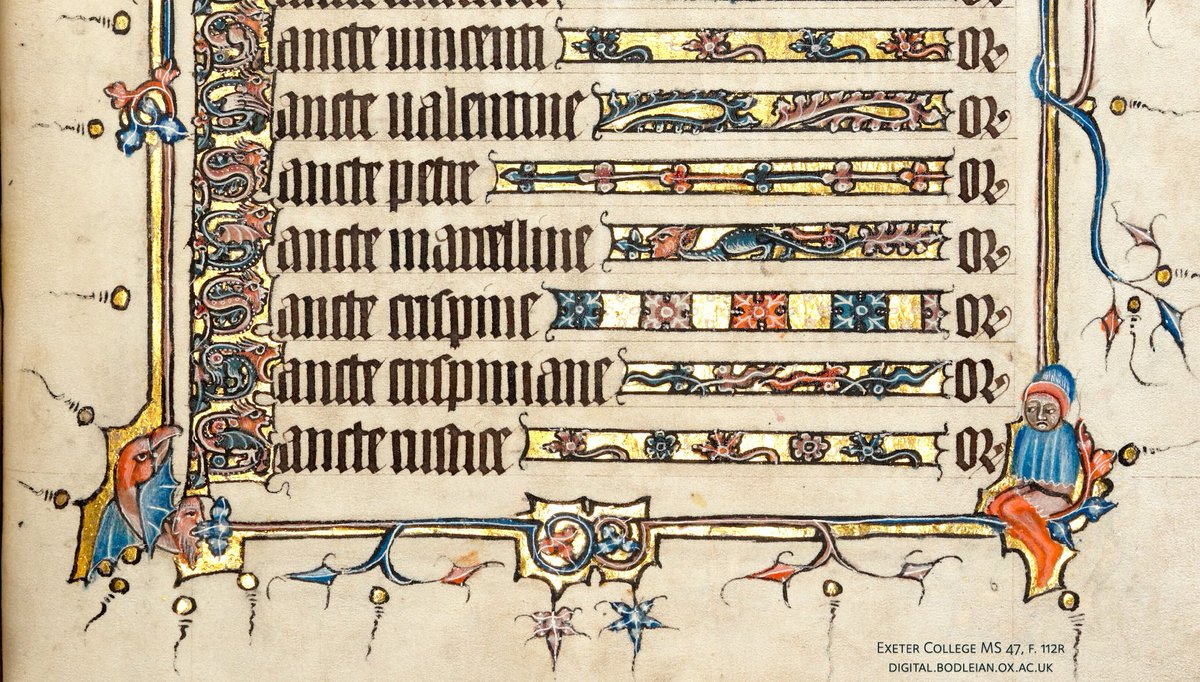 Sancte uincenti OR
Sancte ualentine OR
Sancte petre OR
Sancte marcelline OR
Sancte crispine OR
Sancte crispiniane OR
Sancte rustice OR
EXETER COLLEGE MS 47, F. 112R
DIGITAL.BODLEIAN.OX.AC.UK